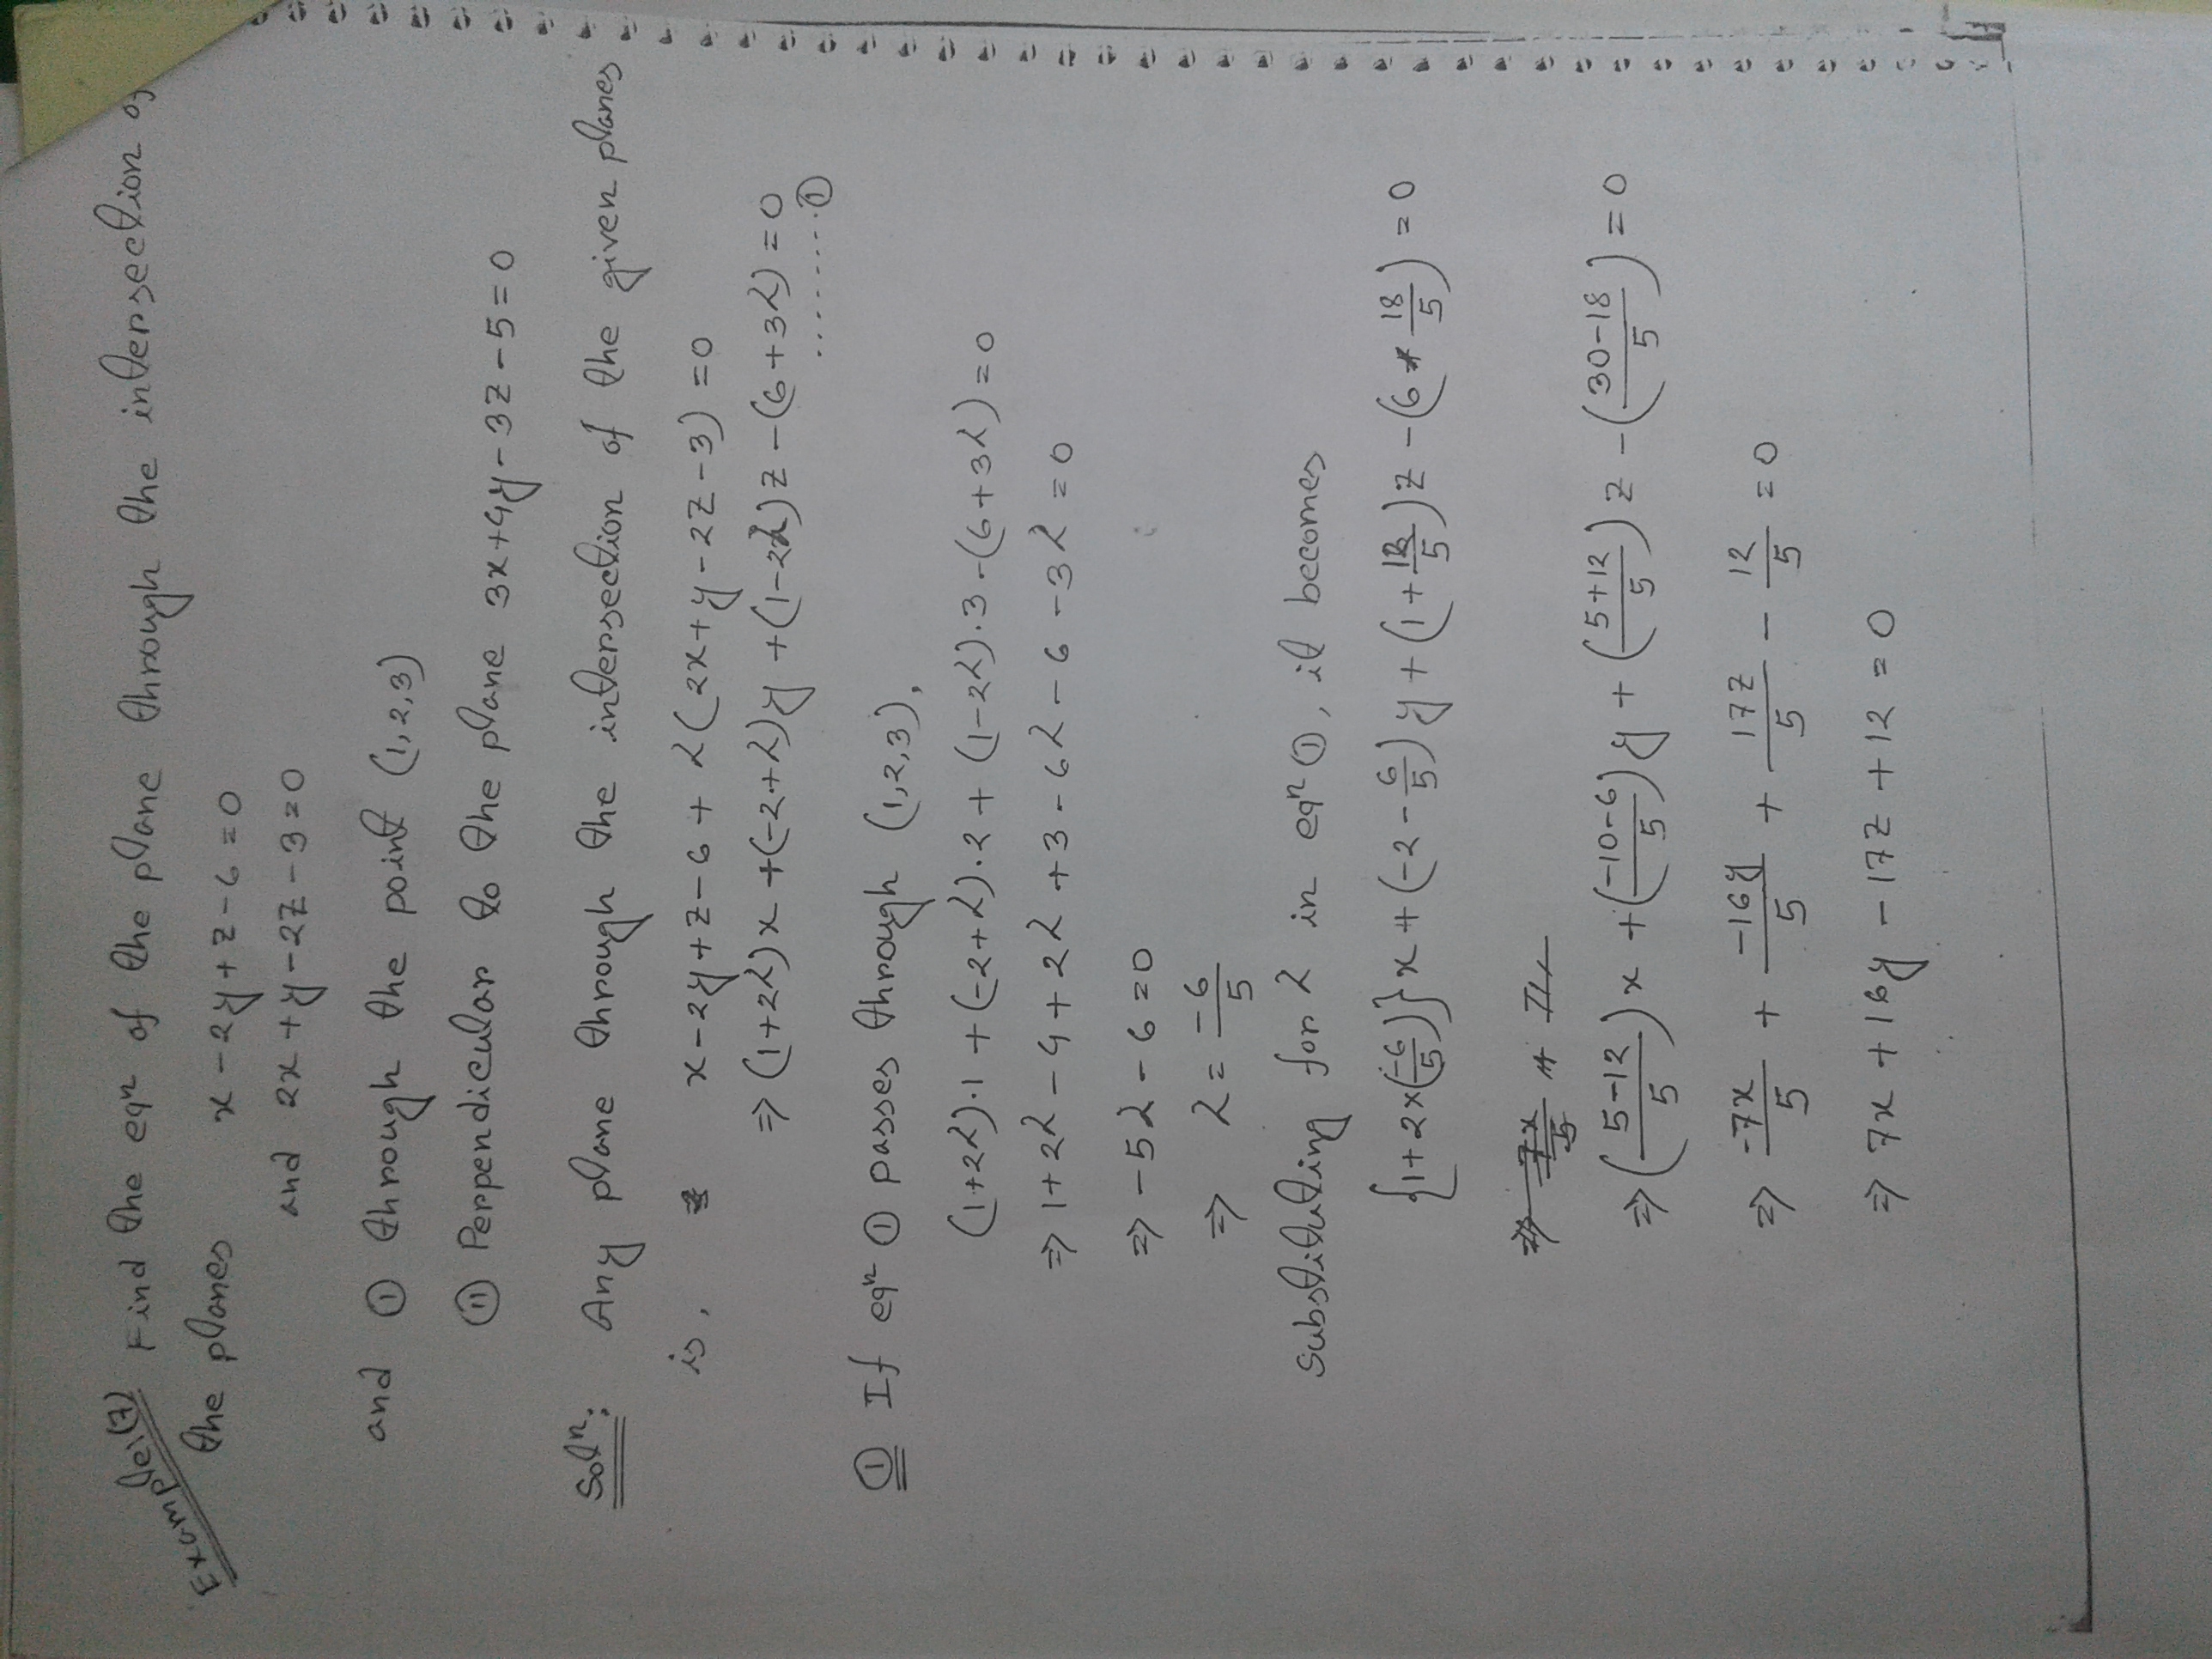 Example:(7) Find the eqⁿ of the plane through the intersection of
the planes x - 2y + z - 6 = 0
and 2x + y - 2z - 3 = 0
and ① through the point (1,2,3)
⑪ Perpendicular to the plane 3x+4y-3z-5=0
Solⁿ: Any plane through the intersection of the given planes
is, x-2y+z-6 + λ(2x+y-2z-3) = 0
⇒ (1+2λ)x +(-2+λ)y +(1-2λ)z -(6+3λ) = 0
........①
① If eqⁿ ① passes through (1,2,3),
(1+2λ).1 + (-2+λ).2 + (1-2λ).3 -(6+3λ) = 0
⇒ 1+2λ - 4 + 2λ + 3 - 6λ - 6 - 3λ = 0
⇒ -5λ - 6 = 0
⇒ λ = -6/5
Substituting for λ in eqⁿ ①, it becomes
{1+2×(-6/5)}x + (-2 - 6/5)y + (1 + 12/5)z - (6 - 18/5) = 0
⇒ (5-12/5)x + (-10-6/5)y + (5+12/5)z - (30-18/5) = 0
⇒ -7x/5 + -16y/5 + 17z/5 - 12/5 = 0
⇒ 7x + 16y - 17z + 12 = 0